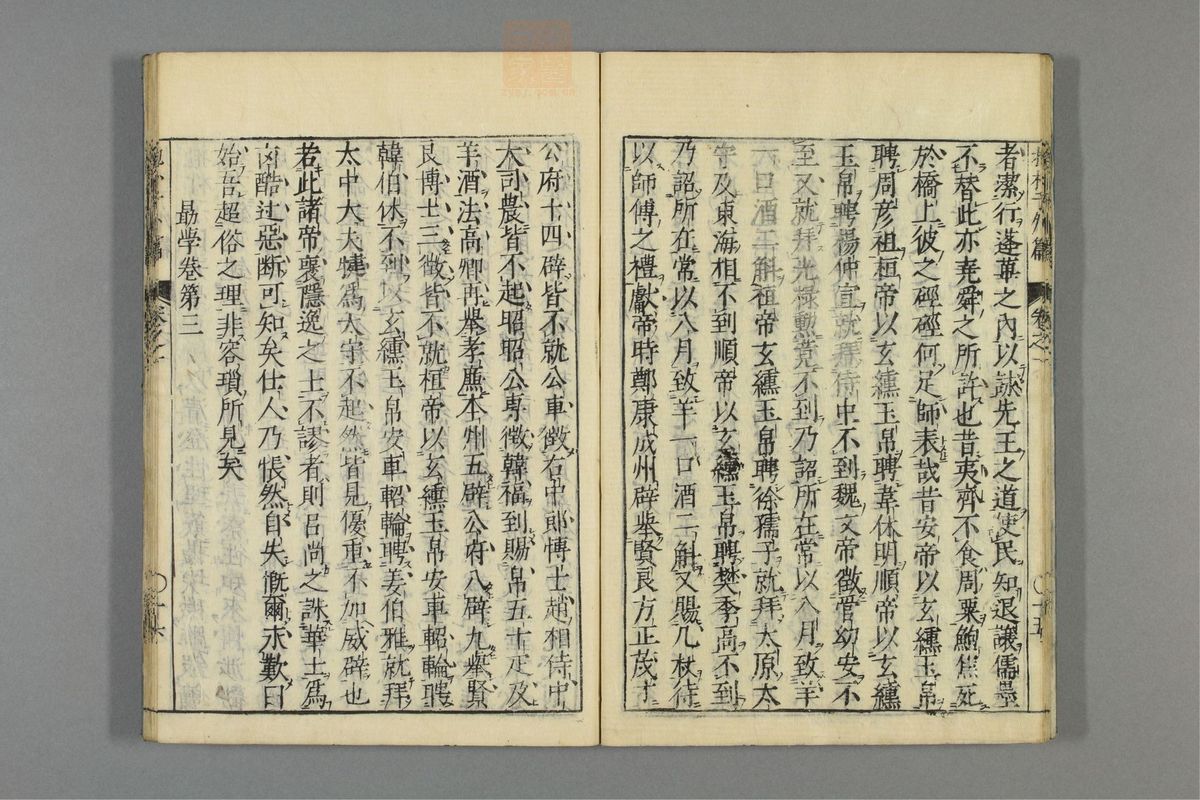 者潔行蓬蓽之內以詠先王之道使民知退讓儒墨
不替此亦堯舜之所許也昔夷齊不食周粟鮑焦死
於橋上彼之硜硜何足師表哉昔安帝以玄纁玉帛
聘周彦祖桓帝以玄纁玉帛聘韋休明順帝以玄纁
玉帛聘楊仲宣就拜侍中不到魏文帝徵管幼安不
至又就拜光祿勲竟不到乃詔所在常以八月致羊
一口酒二斛桓帝玄纁玉帛聘徐孺子就拜太原太
守及東海相不到順帝以玄纁玉帛聘樊季高不到
乃詔所在常以八月致羊一口酒二斛又賜几杖待
以師傅之禮獻帝時鄭康成州辟舉賢良方正茂才
公府十四辟皆不就公車徵右中郎博士趙相侍中
大司農皆不起昭昭公專徵韓福到賜帛五十疋及
羊酒法高卿再舉孝廉本州五辟公府八辟九舉賢
良博士三徵皆不就桓帝以玄纁玉帛安車軺輪聘
韓伯休不到以玄纁玉帛安車軺輪聘姜伯雅就拜
太中大夫犍爲太守不起然皆見優重不加威辟也
若此諸帝褒隱逸之士不謬者則呂尚之誅華士爲
凶酷过惡断可知矣仕人乃悵然自失慨爾永歎曰
始吾超俗之理非容瑣所見矣
勗学卷第三